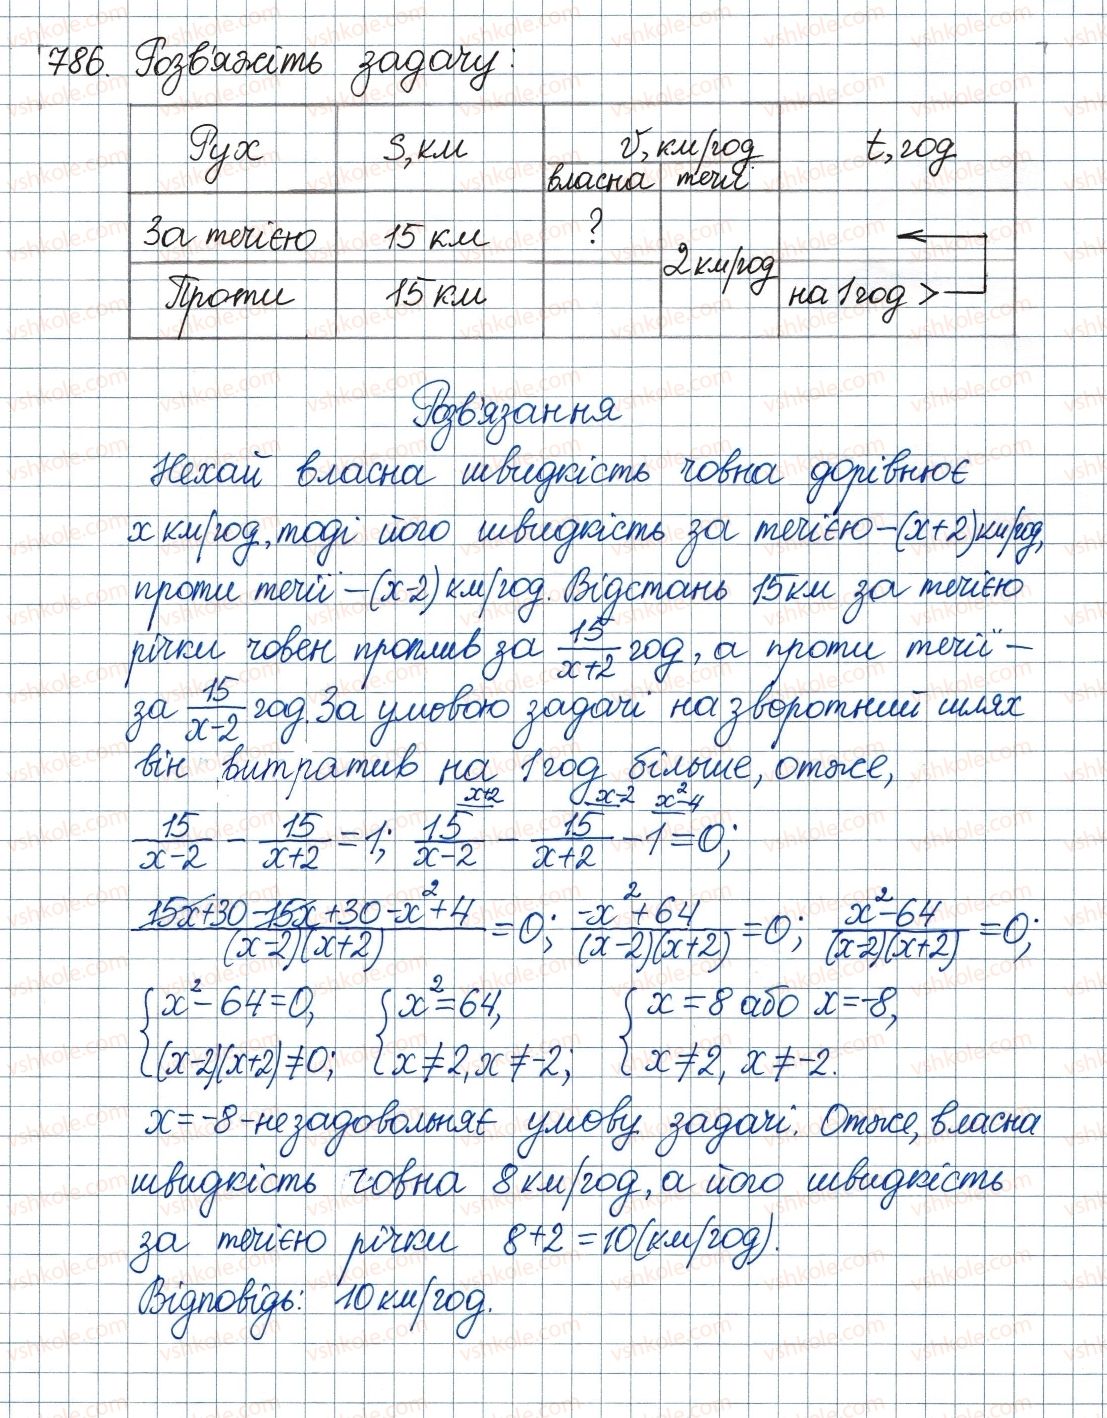 786. Розв'яжіть задачу:
Рух S, км V, км/год t, год
власна течії
За течією 15 км ?
2 км/год
Проти 15 км на 1 год >
Розв'язання
Нехай власна швидкість човна дорівнює
x км/год, тоді його швидкість за течією – (x+2) км/год,
проти течії – (x-2) км/год. Відстань 15 км за течією
річки човен проплив за 15/(x+2) год, а проти течії –
за 15/(x-2) год. За умовою задачі на зворотний шлях
він витратив на 1 год більше, отже,
x+2 x-2 x²-4
15/(x-2) - 15/(x+2) = 1; 15/(x-2) - 15/(x+2) - 1 = 0;
(15x+30-15x+30-x²+4)/((x-2)(x+2)) = 0; (-x²+64)/((x-2)(x+2)) = 0; (x²-64)/((x-2)(x+2)) = 0;
{ x²-64=0, { x²=64, { x=8 або x=-8,
(x-2)(x+2)≠0; x≠2, x≠-2; x≠2, x≠-2.
x=-8 - не задовольняє умову задачі. Отже, власна
швидкість човна 8 км/год, а його швидкість
за течією річки 8+2=10 (км/год).
Відповідь: 10 км/год.